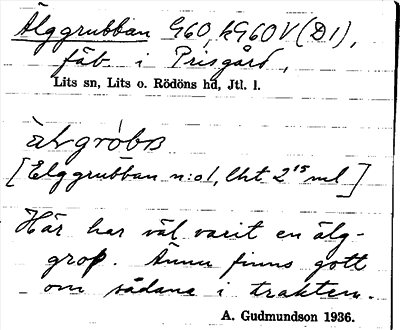 Älggrubban 960, k960V (D1),
fäb. i Prisgård,
Lits sn, Lits o. Rödöns hd, Jtl. l.
[Elggrubban n:o1, lht 2 15 ml]
Här har väl varit en älg-
grop. Ännu finns gott
om sådana i trakten.
A. Gudmundson 1936.